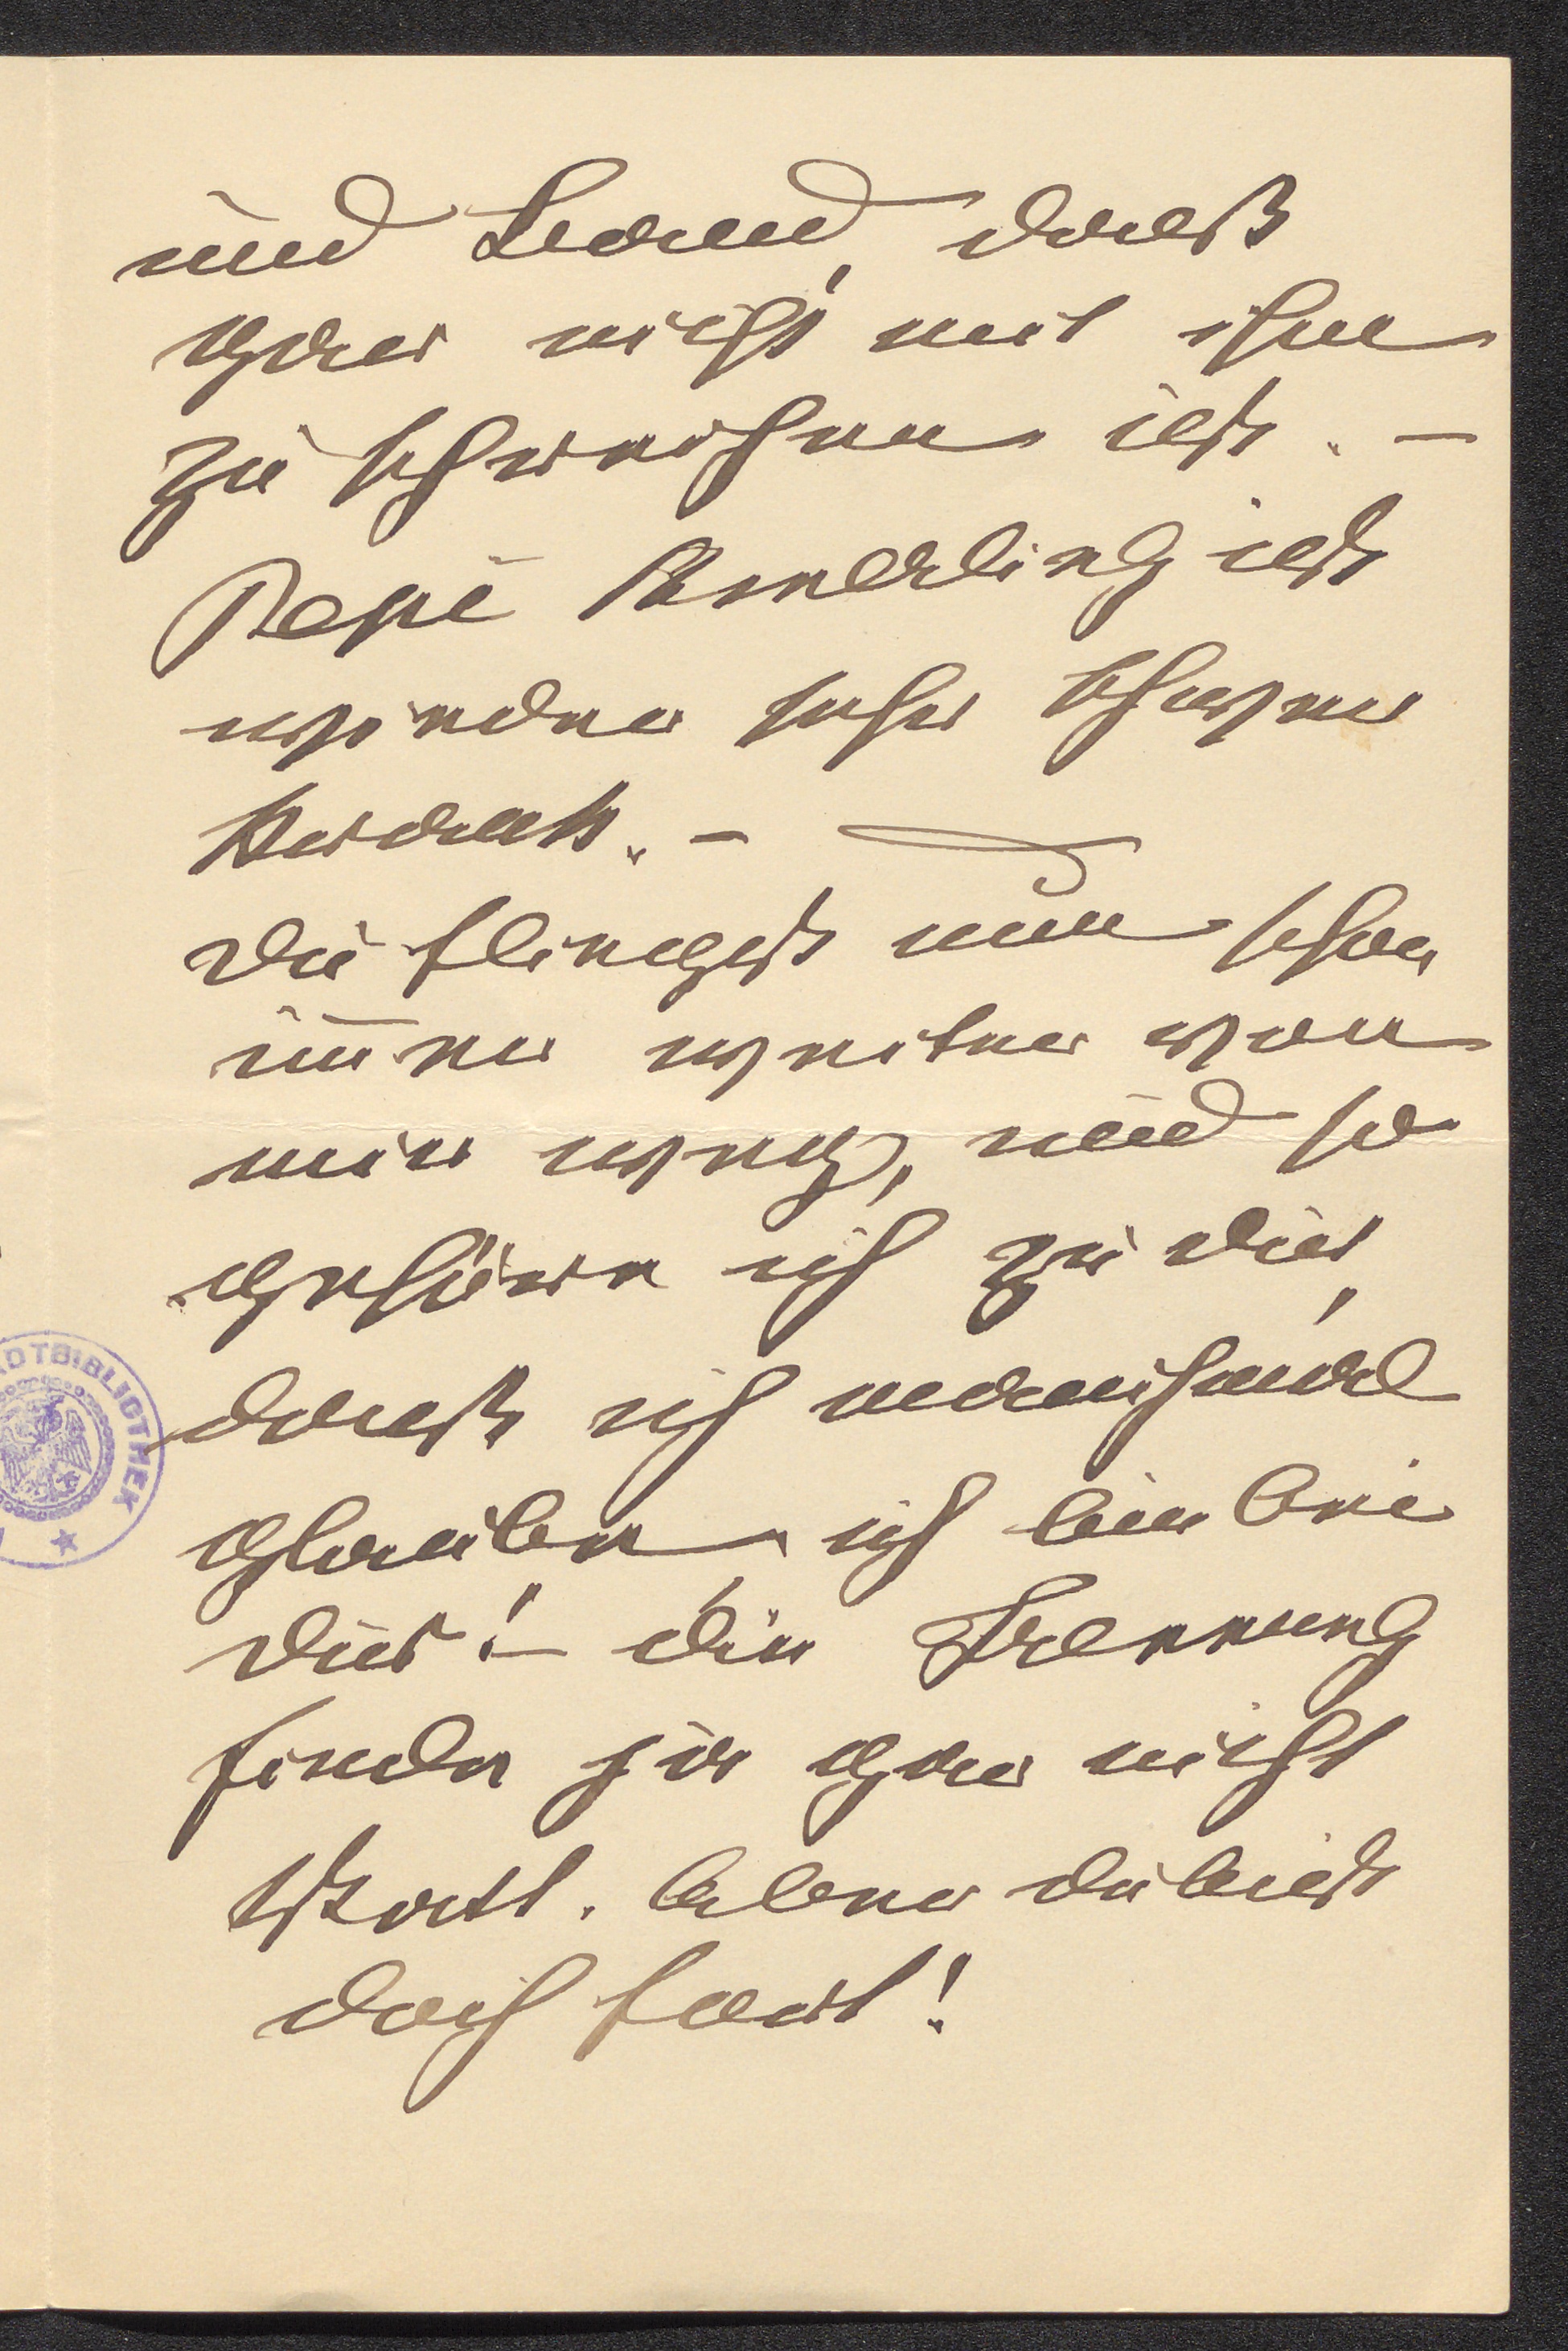 und Leonid, daß
gar nicht mit ihm
zu sprechen ist. –
Pepi ist
wieder sehr schwer
krank. –
Du fliegst nun schon
im̅er weiter von
mir weg, und so
gehöre ich zu dir,
daß ich manchmal
glaube, ich bin bei
dir! – die Trennung
findet für gar nicht
statt. Aber du bist
doch fort!
STADTBIBLIOTHEK